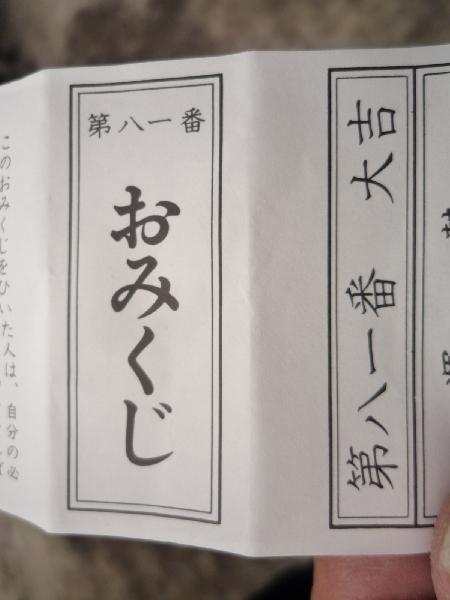 第八一番
おみくじ
第八一番 大吉
このおみくじをひいた人は、自分の必